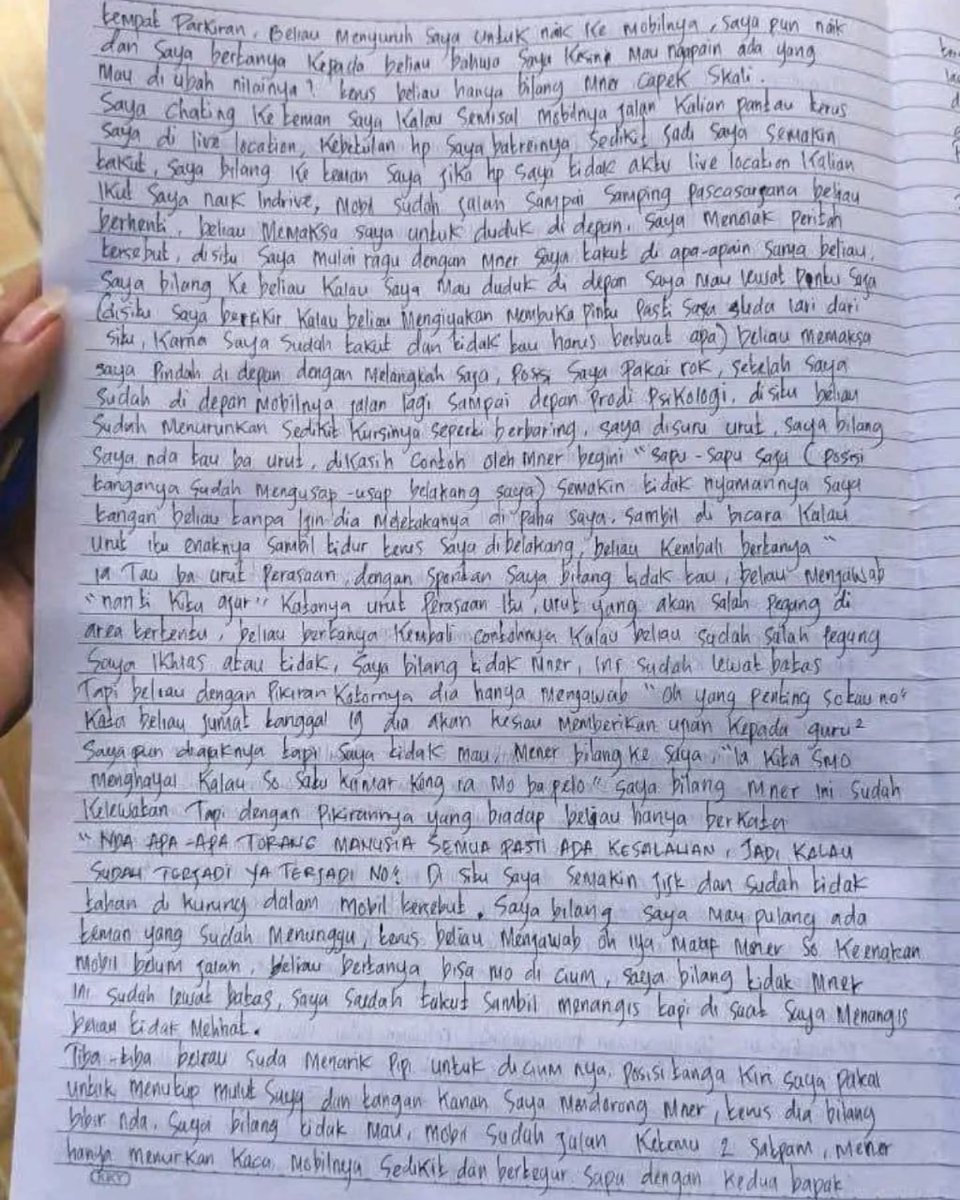 tempat Parkiran, Beliau Menyuruh Saya untuk naik Ke Mobilnya, Saya pun naik
dan Saya bertanya Kepada beliau bahwa Saya Mau ngapain ada yang
Mau di ubah nilainya? terus beliau hanya bilang Mner capek Skali.
Saya Chating Ke teman Saya Kalau Semisal Mobilnya jalan Kalian pantau terus
Saya di live location, Kebetulan hp Saya batreinya Sedikit Jadi Saya Semakin
takut, Saya bilang Ke teman Saya jika hp Saya tidak aktu live location Kalian
Ikut Saya naik Indrive, Mobil Sudah jalan Sampai Samping pascasarjana beliau
berhenti, beliau Memaksa Saya untuk duduk di depan, Saya Menolak Perintah
tersebut, disitu Saya Mulai ragu dengan Mner Saya takut di apa-apain Sama beliau.
Saya bilang Ke beliau Kalau Saya Mau duduk di depan Saya Mau lewat Pintu Saja
(disitu Saya berfikir Kalau beliau Mengiyakan Membuka Pintu Pasti Saya Suda lari dari
Situ, Karna Saya Sudah takut dan tidak tau harus berbuat apa) beliau memaksa
Saya Pindah di depan dengan Melangkah Saja, Posisi Saya Pakai rok, Setelah Saya
Sudah di depan Mobilnya jalan lagi Sampai depan Prodi Psikologi, disitu beliau
Sudah Menurunkan Sedikit Kursinya Seperti berbaring, Saya disuru urut, Saya bilang
Saya nda tau ba urut, dikasih Contoh oleh Mner begini "Sapu-Sapu Saja (Posisi
tanganya Sudah Mengusap-usap belakang Saya) Semakin tidak nyamannya Saya
tangan beliau tanpa Izin dia Meletakanya di paha Saya. Sambil di bicara Kalau
Urut itu enaknya Sambil tidur terus Saya dibelakang, beliau Kembali bertanya "
ia Tau ba urut Perasaan, dengan Spontan Saya bilang tidak tau, beliau Menjawab
"nanti Kita ajar" Katanya urut Perasaan Itu, urut yang akan Salah Pegang di
area tertentu, beliau bertanya Kembali contohnya Kalau beliau Sudah Salah Pegang
Saya Ikhlas atau tidak, Saya bilang tidak Mner, Ini Sudah lewat batas
Tapi beliau dengan Pikiran Kotornya dia hanya Mengawab "oh yang penting So tau no"
Kata beliau Jumat tanggal 19 dia akan Memberikan ujian Kepada guru²
Saya pun diajaknya tapi Saya tidak mau, Mener bilang ke Saya, "Ia Kita Smo
Menghayal Kalau So Satu Kamar Kong ia Mo ba pelo" Saya bilang Mner Ini Sudah
Kelewatan Tapi dengan Pikirannya yang biadap beliau hanya berKata
"NDA APA-APA TORANG MANUSIA SEMUA PASTI ADA KESALAHAN, JADI KALAU
SUDAH TERJADI YA TERJADI NO" Di Situ Saya Semakin JiJk dan Sudah tidak
tahan di Kurung dalam Mobil tersebut. Saya bilang Saya Mau pulang ada
teman yang Sudah Menunggu, terus beliau Menjawab oh iya Maaf Mener So Keenakan
Mobil belum jalan, beliau bertanya bisa Mo di Cium, Saya bilang tidak Mner
Ini Sudah lewat batas, Saya Sudah takut Sambil Menangis tapi di Saat Saya Menangis
beliau tidak Melihat.
Tiba-tiba beliau Suda Menarik Pipi untuk diCium nya, Posisi tanga Kiri Saya pakai
untuk Menutup Mulut Saya dan tangan Kanan Saya Mendorong Mner, terus dia bilang
bibir nda. Saya bilang tidak Mau, Mobil Sudah jalan Ketemu 2 Satpam, Mener
hanya Menurkan Kaca Mobilnya Sedikit dan bertegur Sapa dengan Kedua bapak
KKY